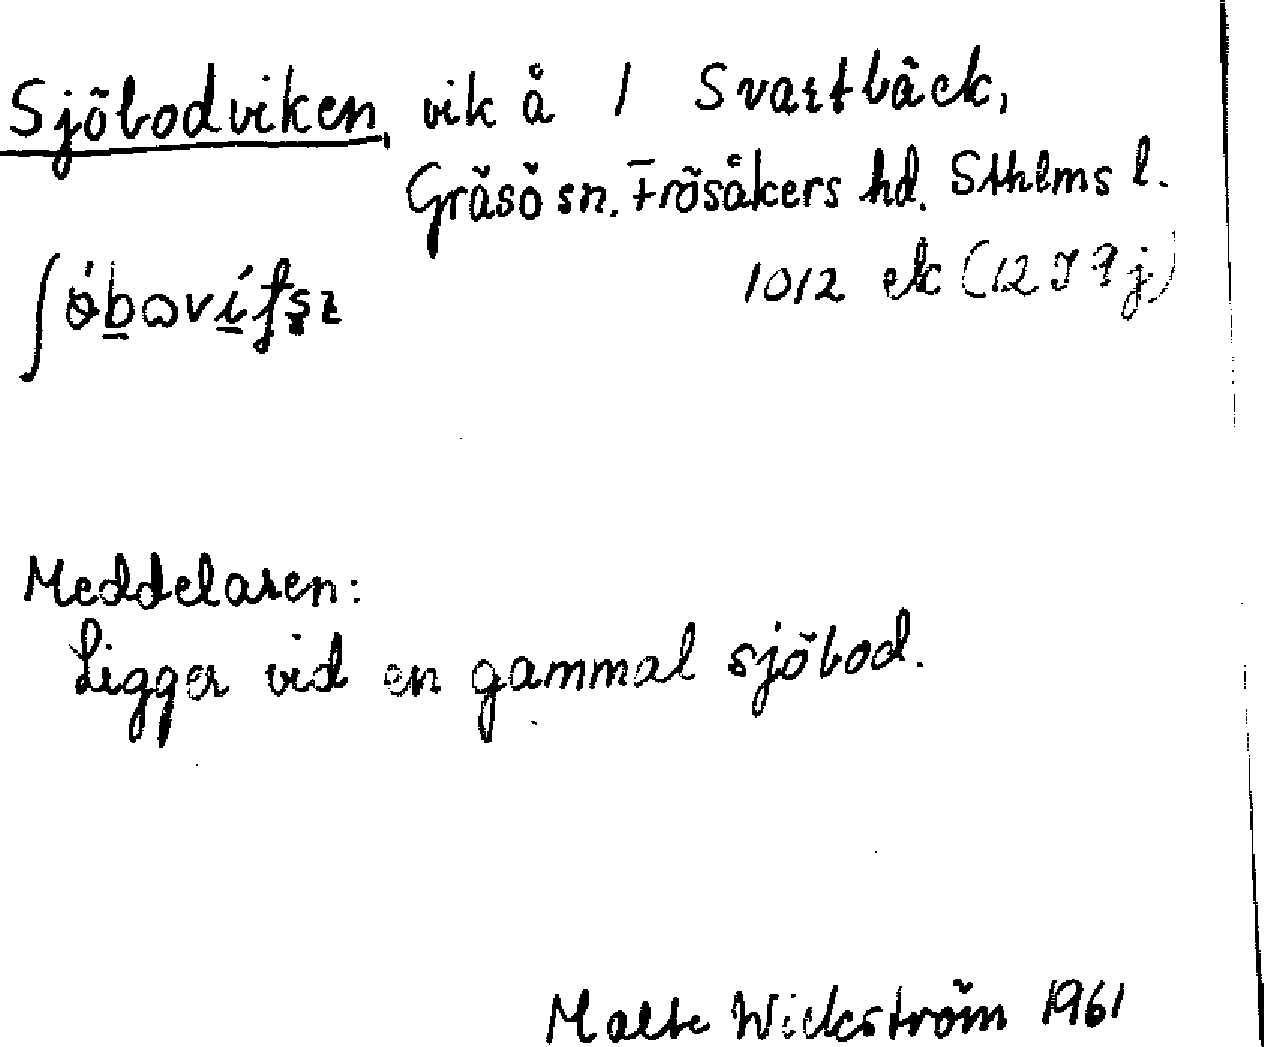 Sjöbodviken, vik å 1 Svartbäck,
Gräsö sn. Frösåkers hd. Sthlms l.
1012 ek (12I9j)
Meddelaren:
Ligger vid en gammal sjöbod.
Malte Wickström 1961